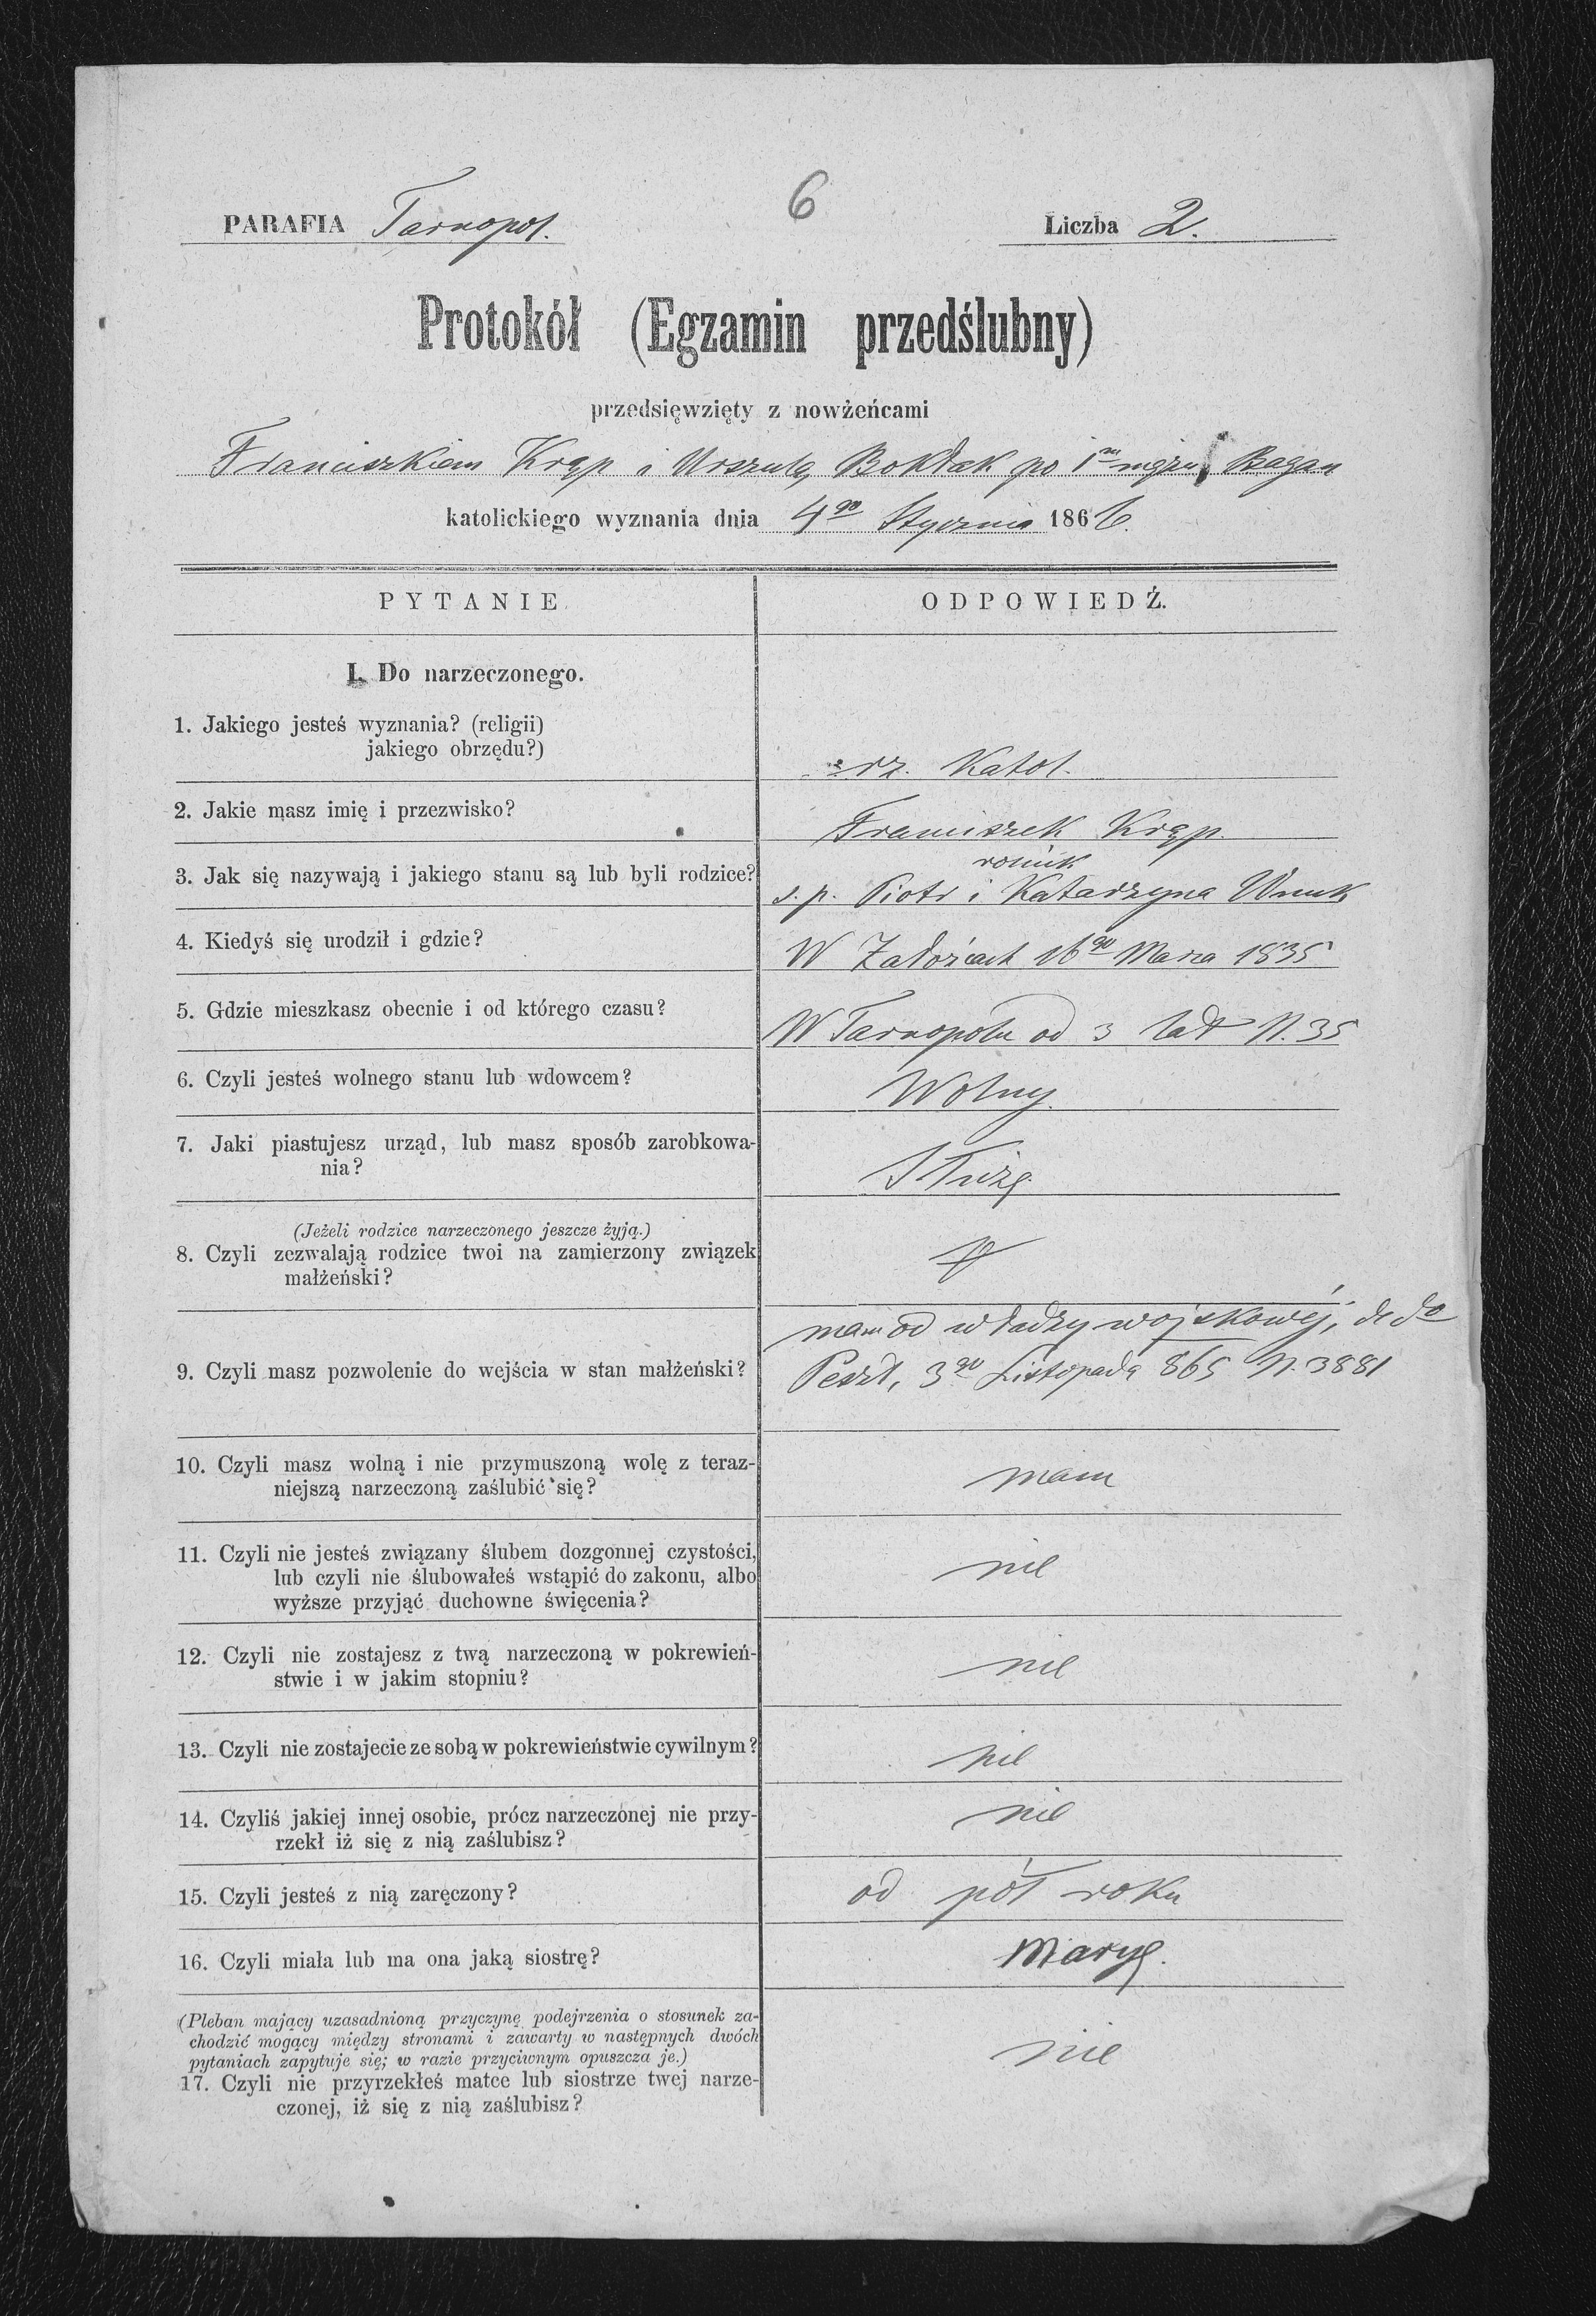 6
PARAFIA Tarnopol.
Liczba 2.
Protokół (Egzamin przedślubny)
przedsięwzięty z nowżeńcami
Franciszkiem Krąp i Urszulą Bokłak po 1m mężu Bagan
katolickiego wyznania dnia 4go Stycznia 1866.
PYTANIE.
ODPOWIEDŹ.
I. Do narzeczonego.
1. Jakiego jesteś wyznania? (religii)
jakiego obrzędu?)
rz. Katol.
2. Jakie masz imię i przezwisko?
Franciszek Krąp.
3. Jak się nazywają i jakiego stanu są lub byli rodzice?
rolnik
s. p. Piotr i Katarzyna Wnuk
4. Kiedyś się urodził i gdzie?
W Załoźcach 16go Marca 1835
5. Gdzie mieszkasz obecnie i od którego czasu?
W Tarnopolu od 3 lat N. 35
6. Czyli jesteś wolnego stanu lub wdowcem?
Wolny.
7. Jaki piastujesz urząd, lub masz sposób zarobkowa-
nia?
Służę.
(Jeżeli rodzice narzeczonego jeszcze żyją.)
8. Czyli zezwalają rodzice twoi na zamierzony związek
małżeński?
9. Czyli masz pozwolenie do wejścia w stan małżeński?
mam od władzy wojskowéj, de do
Peszt, 3go Listopada 865 N. 3881
10. Czyli masz wolną i nie przymuszoną wolę z teraz-
niejszą narzeczoną zaślubić się?
mam
11. Czyli nie jesteś związany ślubem dozgonnej czystości,
lub czyli nie ślubowałeś wstąpić do zakonu, albo
wyższe przyjąć duchowne święcenia?
nie
12. Czyli nie zostajesz z twą narzeczoną w pokrewień-
stwie i w jakim stopniu?
nie
13. Czyli nie zostajecie ze sobą w pokrewieństwie cywilnym?
nie
14. Czyliś jakiej innej osobie, prócz narzeczonej nie przy-
rzekł iż się z nią zaślubisz?
nie
15. Czyli jesteś z nią zaręczony?
od pół roku
16. Czyli miała lub ma ona jaką siostrę?
Maryę.
(Pleban mający uzasadnioną przyczynę podejrzenia o stosunek za-
chodzić mogący między stronami i zawarty w następnych dwóch
pytaniach zapytuje się; w razie przyciwnym opuszcza je.)
17. Czyli nie przyrzekłeś matce lub siostrze twej narze-
czonej, iż się z nią zaślubisz?
nie